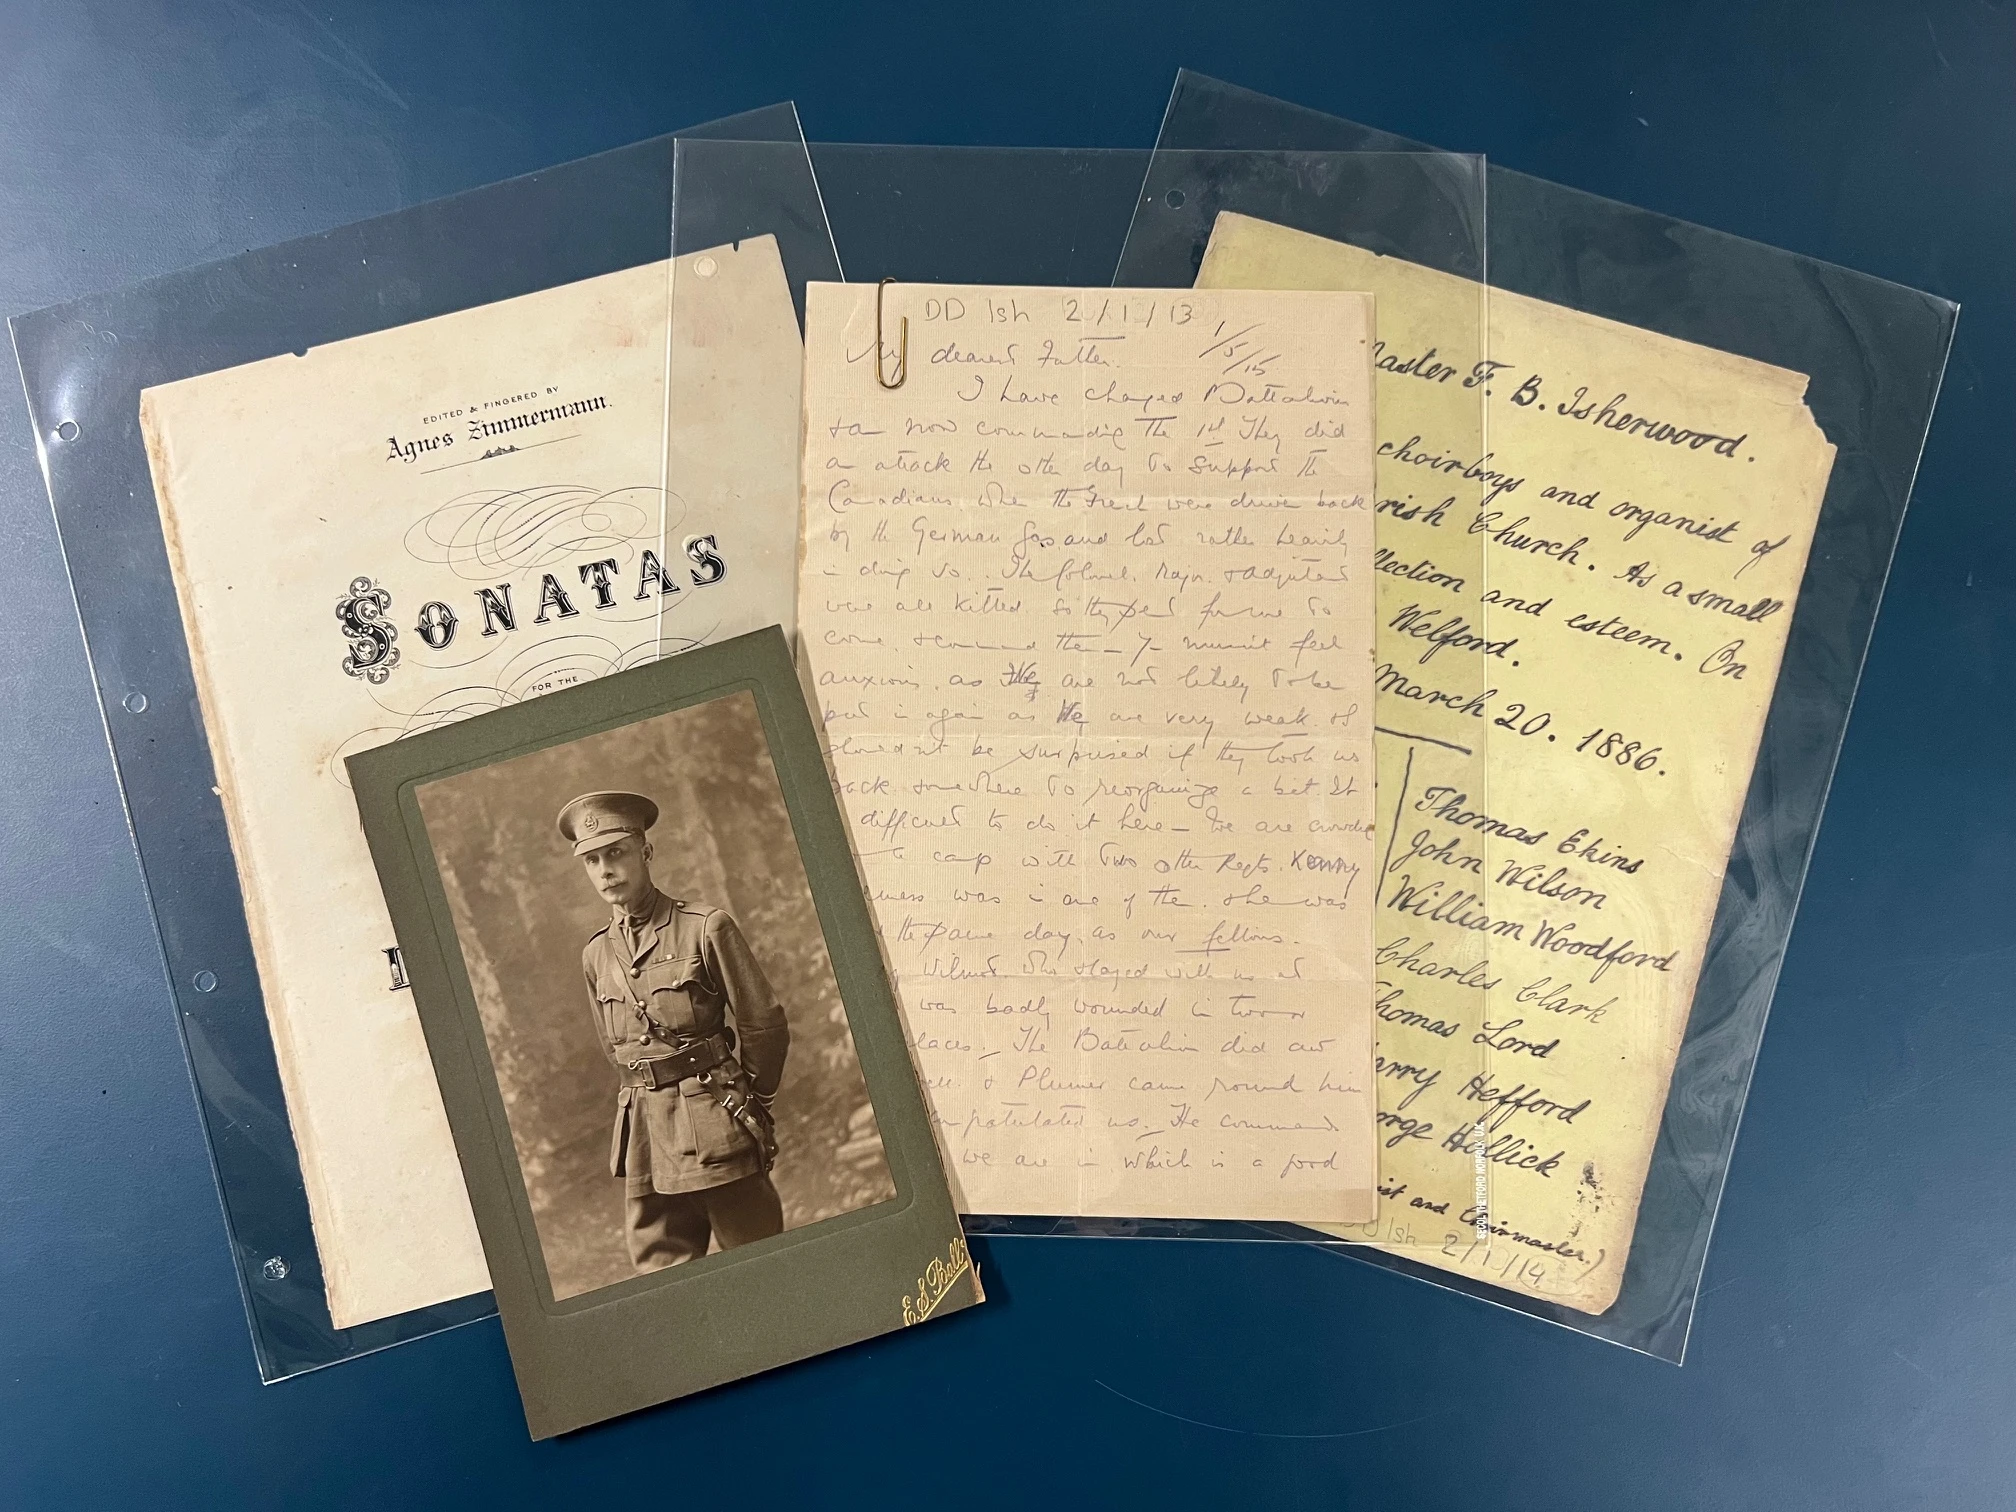 EDITED & FINGERED BY
Agnes Zimmermann.
SONATAS
FOR THE
E. S. Ball
DD Ish 2/1/13
1/5/15
My dearest Father.
I have changed Battalions
& am now commanding the 1st They did
an attack the other day to support the
Canadians when the French were driven back
by the German gas and lost rather heavily
in doing so. The Colonel, Major & Adjutant
were all killed so they sent for me to
come & command them - Y- mustnt feel
anxious, as they are not likely to be
put in again as they are very weak. I
shouldnt be surprised if they took us
back somewhere to reorganize a bit. It
difficult to do it here - We are crowded
camp with two other Regts. Kenny
was in one of the. She was
the same day as our fellows.
Wilmot who stayed with us at
was badly wounded in two or
places. The Battalion did
& Plumer came round him
us. He commands
we are in which is a good
Master F. B. Isherwood.
choirboys and organist of
rish Church. As a small
llection and esteem. On
Welford.
March 20. 1886.
Thomas Ekins
John Wilson
William Woodford
Charles Clark
Thomas Lord
arry Hefford
orge Hollick
ist and Choirmaster.)
Ish 2/1/14
SECOL THETFORD NORFOLK UK